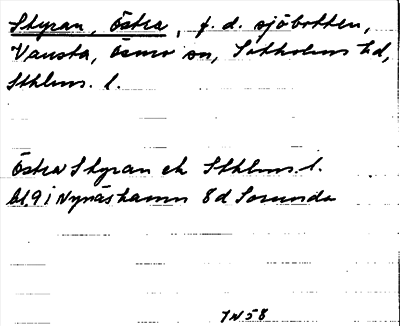 Styran, Östra, f. d. sjöbotten,
Vansta, Ösmo sn, Sotholms hd,
Sthlms. l.
Östra Styran ek Sthlms. l.
bl. 9 i Nynäshamn 8d Sorunda
JN58